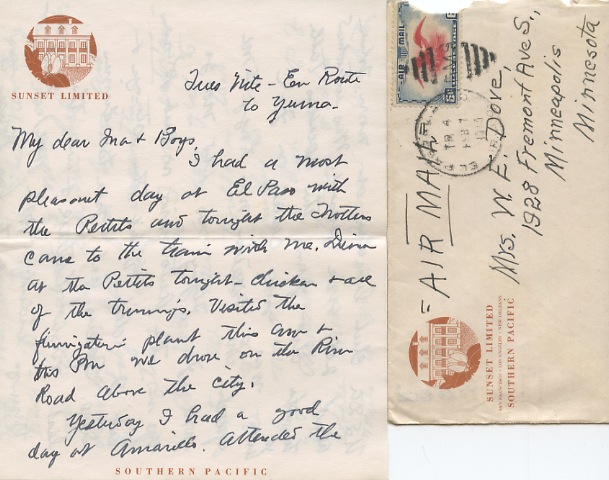 SUNSET LIMITED
Tues Nite - En Route
to Yuma -
My dear Ina & Boys,
I had a most
pleasant day at El Paso with
the Pettits and tonight the Trotters
came to the train with me. Dinner
at the Pettits tonight - chicken & all
of the trimmings. Visited the
fumigation plant this am &
this Pm we drove on the River
Road above the city.
Yesterday I had a good
day at Amarillo. Attended the
SOUTHERN PACIFIC
AIR MAIL
6¢
EL PASO
FEB 7
= AIR MAIL
Mrs. W. E. Dove,
1928 Fremont Ave S.,
Minneapolis
Minnesota
SUNSET LIMITED
SAN FRANCISCO · LOS ANGELES · NEW ORLEANS
SOUTHERN PACIFIC